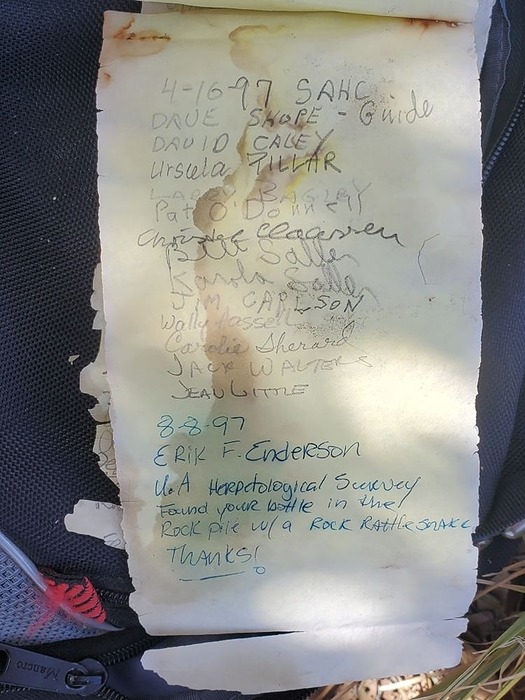 4-16-97 SAHC
DAVE SHOPE - Guide
DAVID CALEY
Ursula TILLAR
BAGLEY
Pat O'Donnell
Christel Claassen
Bill Saller
Karola Saller
JIM CARLSON
Wally Aassen
Carolie Sherard
JACK WALTERS
JEAN LITTLE
8-8-97
ERIK F. Enderson
U.A Herpetological Survey
Found your bottle in the
Rock pile w/a ROCK RATTLESNAKE
THANKS!